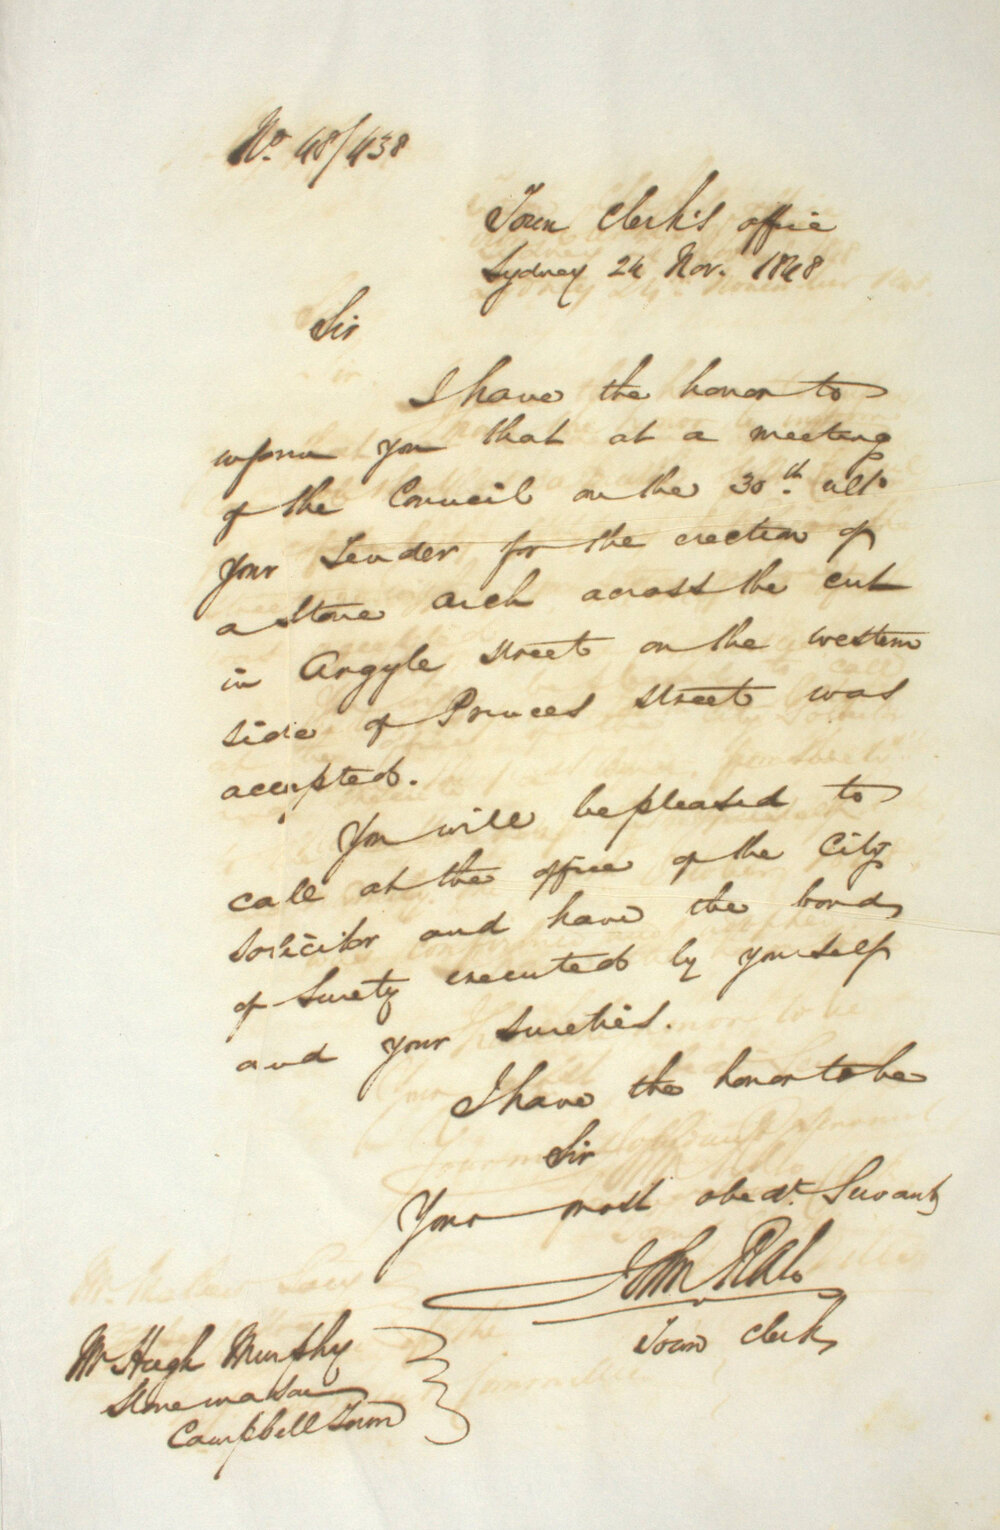 No. 48/438
Town Clerk's office
Sydney 24 Nov. 1848
Sir
I have the honor to
inform you that at a meeting
of the Council on the 30th. ulto
your Tender for the erection of
a stone arch across the cut
in Argyle street on the western
side of Princes street was
accepted.
You will be pleased to
call at the office of the City
Solicitor and have the bond
of Surety executed by yourself
and your sureties.
I have the honor to be
Sir
Your most obedt. Servant
John
Town Clerk
Mr Hugh Murphy
Stone mason
Campbell Town